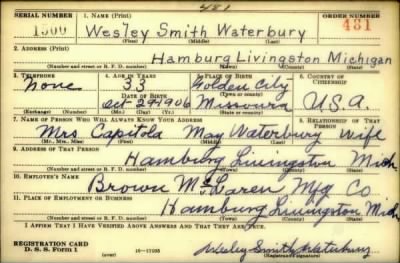 481
SERIAL NUMBER 1. NAME (Print) ORDER NUMBER
1300 Wesley Smith Waterbury 481
(First) (Middle) (Last)
2. ADDRESS (Print)
Hamburg Livingston Michigan
(Number and street or R. F. D. number) (Town) (County) (State)
3. TELEPHONE 4. AGE IN YEARS 5. PLACE OF BIRTH 6. COUNTRY OF CITIZENSHIP
None 33 Golden City
DATE OF BIRTH (Town or county)
Oct-29-1906 Missouri U.S.A.
(Exchange) (Number) (Mo.) (Day) (Yr.) (State or country)
7. NAME OF PERSON WHO WILL ALWAYS KNOW YOUR ADDRESS 8. RELATIONSHIP OF THAT PERSON
Mrs Capitola May Waterbury Wife
(Mr., Mrs., Miss) (First) (Middle) (Last)
9. ADDRESS OF THAT PERSON
Hamburg Livingston Mich.
(Number and street or R. F. D. number) (Town) (County) (State)
10. EMPLOYER'S NAME
Brown McLaren Mfg Co.
11. PLACE OF EMPLOYMENT OR BUSINESS
Hamburg Livingston Mich
(Number and street or R. F. D. number) (Town) (County) (State)
I AFFIRM THAT I HAVE VERIFIED ABOVE ANSWERS AND THAT THEY ARE TRUE.
REGISTRATION CARD
D. S. S. Form 1 (over) 16—17105 Wesley Smith Waterbury